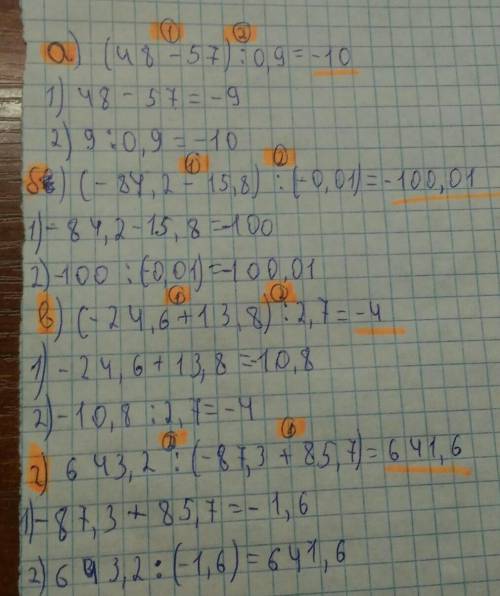 а) (48 - 57) : 0,9 = -10
1) 48 - 57 = -9
2) 9 : 0,9 = -10
б) (-84,2 - 15,8) : (-0,01) = -100,01
1) -84,2 - 15,8 = -100
2) -100 : (-0,01) = -100,01
в) (-24,6 + 13,8) : 2,7 = -4
1) -24,6 + 13,8 = -10,8
2) -10,8 : 2,7 = -4
г) 643,2 : (-87,3 + 85,7) = 641,6
1) -87,3 + 85,7 = -1,6
2) 643,2 : (-1,6) = 641,6